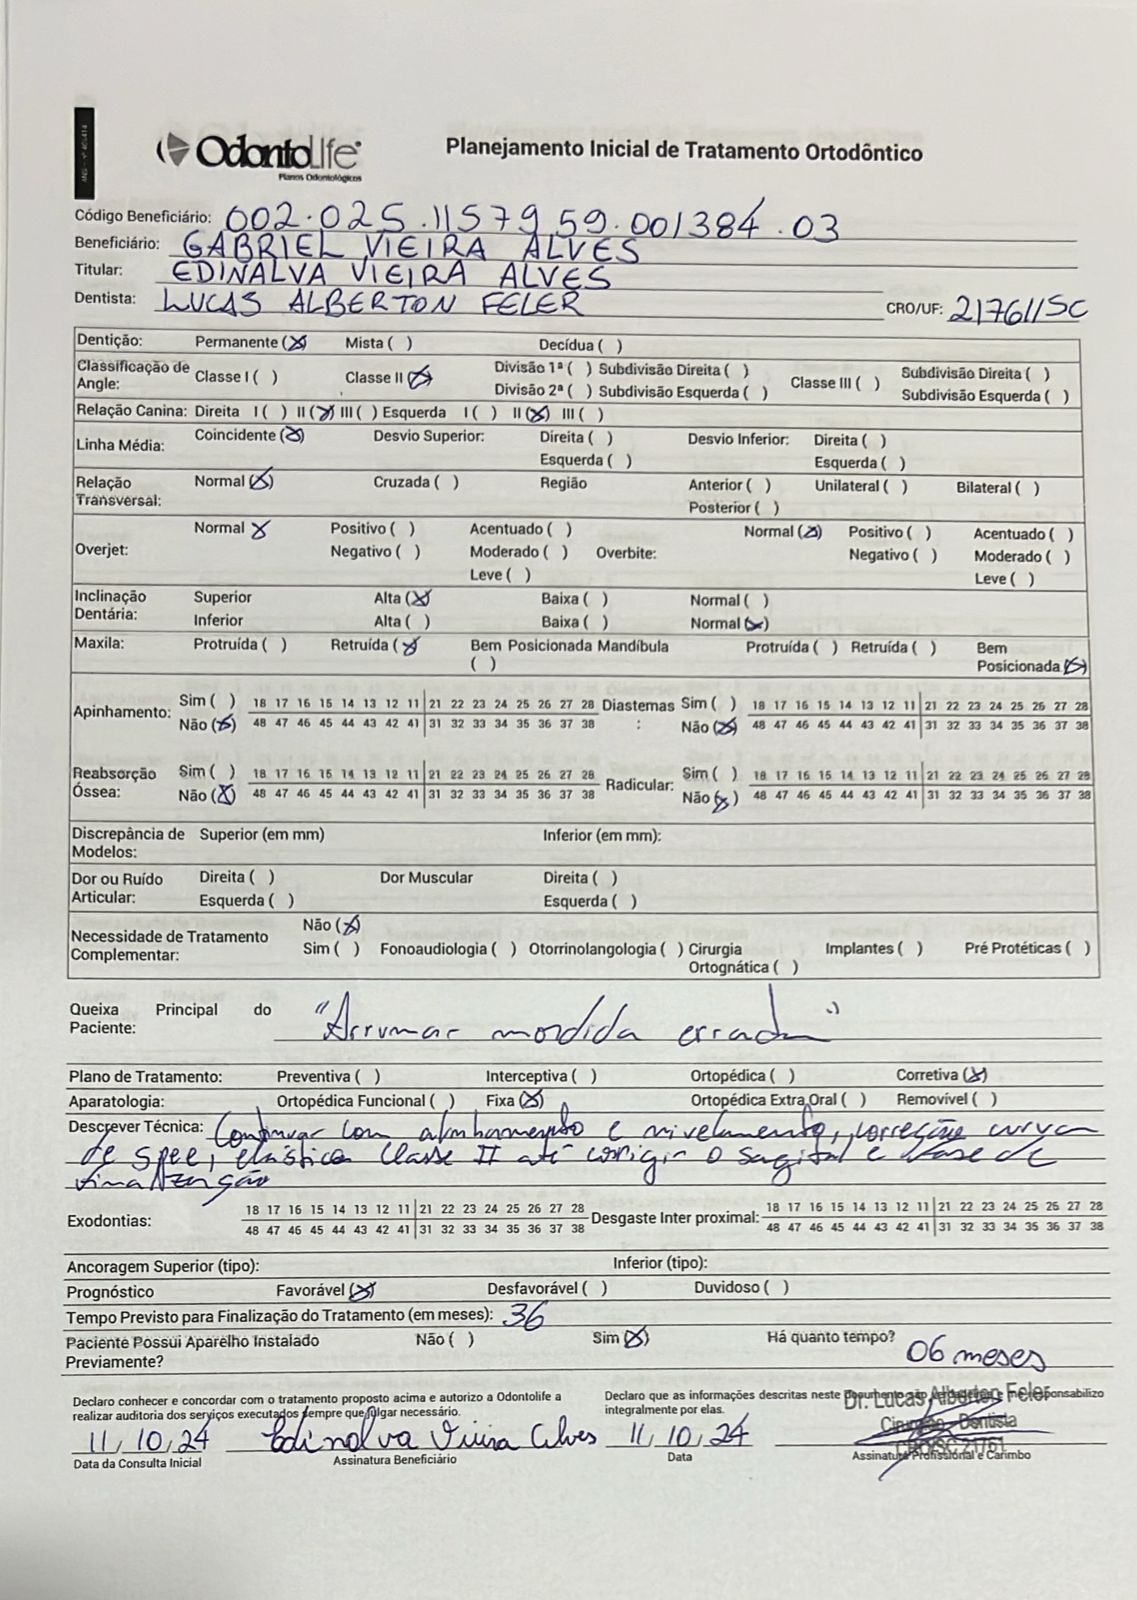 OdontoLife
Planos Odontológicos
Planejamento Inicial de Tratamento Ortodôntico
Código Beneficiário: 002.025.1157959.001384.03
Beneficiário: GABRIEL VIEIRA ALVES
Titular: EDINALVA VIEIRA ALVES
Dentista: LUCAS ALBERTON FELER CRO/UF: 21761/SC
Dentição: Permanente (X) Mista ( ) Decídua ( )
Classificação de Angle: Classe I ( ) Classe II (X) Divisão 1ª ( ) Subdivisão Direita ( ) Classe III ( ) Subdivisão Direita ( )
Divisão 2ª ( ) Subdivisão Esquerda ( ) Subdivisão Esquerda ( )
Relação Canina: Direita I ( ) II (X) III ( ) Esquerda I ( ) II (X) III ( )
Linha Média: Coincidente (X) Desvio Superior: Direita ( ) Desvio Inferior: Direita ( )
Esquerda ( ) Esquerda ( )
Relação Transversal: Normal (X) Cruzada ( ) Região Anterior ( ) Unilateral ( ) Bilateral ( )
Posterior ( )
Overjet: Normal X Positivo ( ) Acentuado ( ) Overbite: Normal (X) Positivo ( ) Acentuado ( )
Negativo ( ) Moderado ( ) Negativo ( ) Moderado ( )
Leve ( ) Leve ( )
Inclinação Dentária: Superior Alta (X) Baixa ( ) Normal ( )
Inferior Alta ( ) Baixa ( ) Normal (X)
Maxila: Protruída ( ) Retruída (X) Bem Posicionada ( ) Mandíbula Protruída ( ) Retruída ( ) Bem Posicionada (X)
Apinhamento: Sim ( ) 18 17 16 15 14 13 12 11 21 22 23 24 25 26 27 28 Diastemas: Sim ( ) 18 17 16 15 14 13 12 11 21 22 23 24 25 26 27 28
Não (X) 48 47 46 45 44 43 42 41 31 32 33 34 35 36 37 38 Não (X) 48 47 46 45 44 43 42 41 31 32 33 34 35 36 37 38
Reabsorção Óssea: Sim ( ) 18 17 16 15 14 13 12 11 21 22 23 24 25 26 27 28 Radicular: Sim ( ) 18 17 16 15 14 13 12 11 21 22 23 24 25 26 27 28
Não (X) 48 47 46 45 44 43 42 41 31 32 33 34 35 36 37 38 Não (X) 48 47 46 45 44 43 42 41 31 32 33 34 35 36 37 38
Discrepância de Modelos: Superior (em mm) Inferior (em mm):
Dor ou Ruído Articular: Direita ( ) Dor Muscular Direita ( )
Esquerda ( ) Esquerda ( )
Necessidade de Tratamento Complementar: Não (X)
Sim ( ) Fonoaudiologia ( ) Otorrinolangologia ( ) Cirurgia Ortognática ( ) Implantes ( ) Pré Protéticas ( )
Queixa Principal do Paciente: "Arrumar mordida errada"
Plano de Tratamento: Preventiva ( ) Interceptiva ( ) Ortopédica ( ) Corretiva (X)
Aparatologia: Ortopédica Funcional ( ) Fixa (X) Ortopédica Extra Oral ( ) Removível ( )
Descrever Técnica: Continuar com alinhamento e nivelamento, correção curva
de spee, elástico Classe II até corrigir o sagital e fase de
finalização
Exodontias: 18 17 16 15 14 13 12 11 21 22 23 24 25 26 27 28 Desgaste Inter proximal: 18 17 16 15 14 13 12 11 21 22 23 24 25 26 27 28
48 47 46 45 44 43 42 41 31 32 33 34 35 36 37 38 48 47 46 45 44 43 42 41 31 32 33 34 35 36 37 38
Ancoragem Superior (tipo): Inferior (tipo):
Prognóstico Favorável (X) Desfavorável ( ) Duvidoso ( )
Tempo Previsto para Finalização do Tratamento (em meses): 36
Paciente Possui Aparelho Instalado Previamente? Não ( ) Sim (X) Há quanto tempo? 06 meses
Declaro conhecer e concordar com o tratamento proposto acima e autorizo a Odontolife a
realizar auditoria dos serviços executados sempre que julgar necessário.
Declaro que as informações descritas neste documento são responsabilizo
integralmente por elas.
Dr. Lucas Alberton Feler
Cirurgião - Dentista
CRO/SC 21761
11, 10, 24 Edinalva Vieira Alves 11, 10, 24
Data da Consulta Inicial Assinatura Beneficiário Data Assinatura Profissional e Carimbo